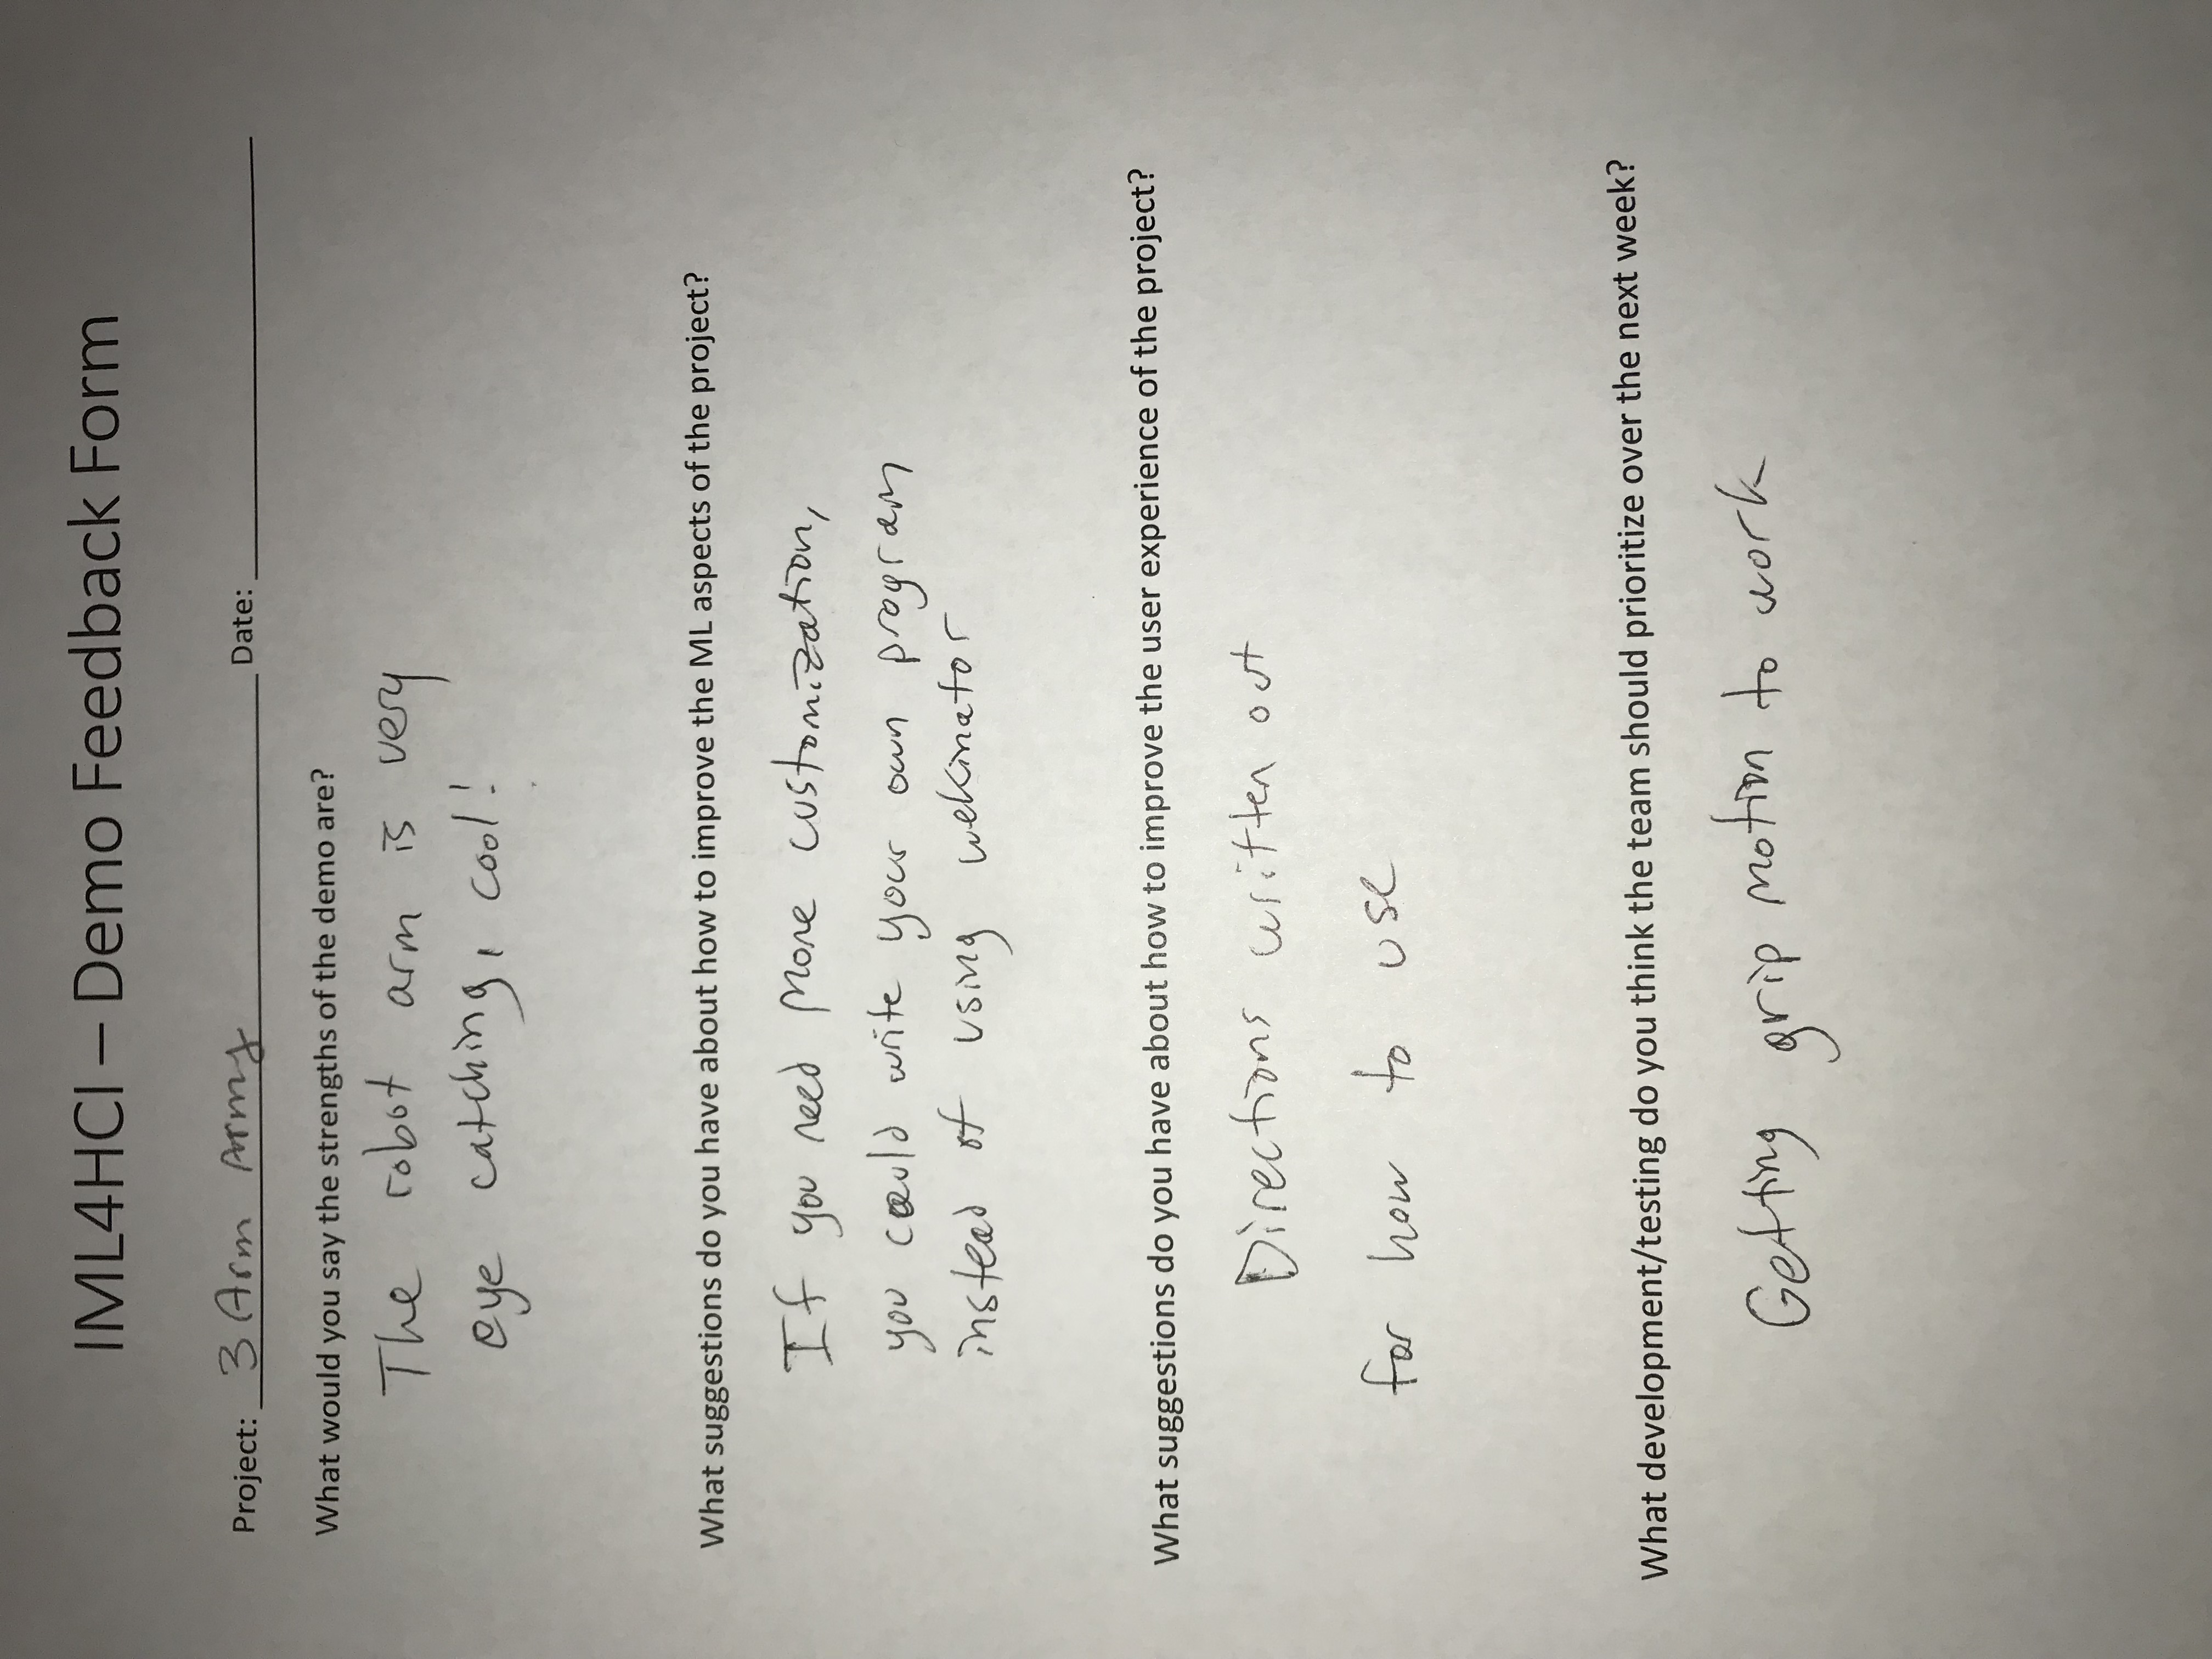 IML4HCI – Demo Feedback Form
Project: 3 Arm Army Date:
What would you say the strengths of the demo are?
The robot arm is very
eye catching, cool!
What suggestions do you have about how to improve the ML aspects of the project?
If you need more customization,
you could write your own program
instead of using wekinator
What suggestions do you have about how to improve the user experience of the project?
Directions written out
for how to use
What development/testing do you think the team should prioritize over the next week?
Getting grip motion to work